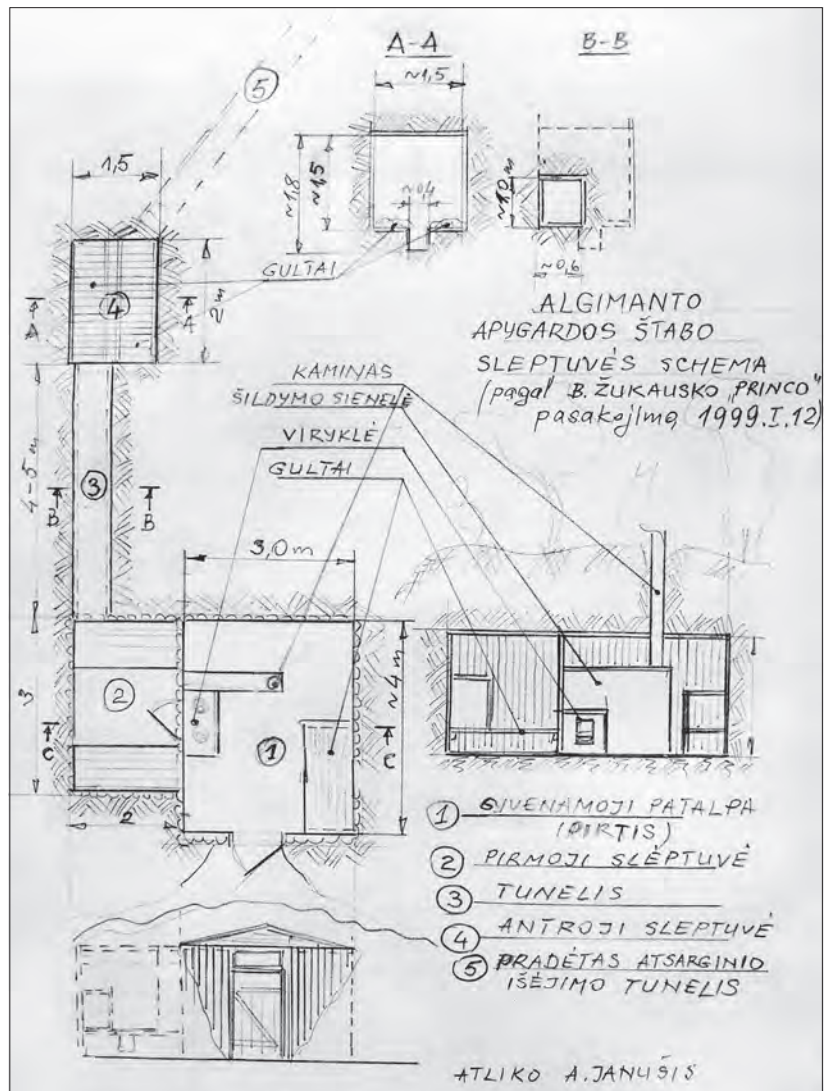 A-A
B-B
~1,5
5
1,5
~1,8
~1,5
~0,4
~1,0 m
~0,6
GULTAI
4
A
A
2 m
ALGIMANTO
APYGARDOS ŠTABO
SLEPTUVĖS SCHEMA
(pagal B. ŽUKAUSKO „PRINCO"
pasakojimą 1999.I.12)
KAMINAS
ŠILDYMO SIENELĖ
VIRYKLĖ
GULTAI
4-5 m
3
B
B
3,0 m
3
2
1
~4 m
C
C
2
1 GYVENAMOJI PATALPA
(PIRTIS)
2 PIRMOJI SLĖPTUVĖ
3 TUNELIS
4 ANTROJI SLEPTUVĖ
5 PRADĖTAS ATSARGINIO
IŠĖJIMO TUNELIS
ATLIKO A. JANUŠIS